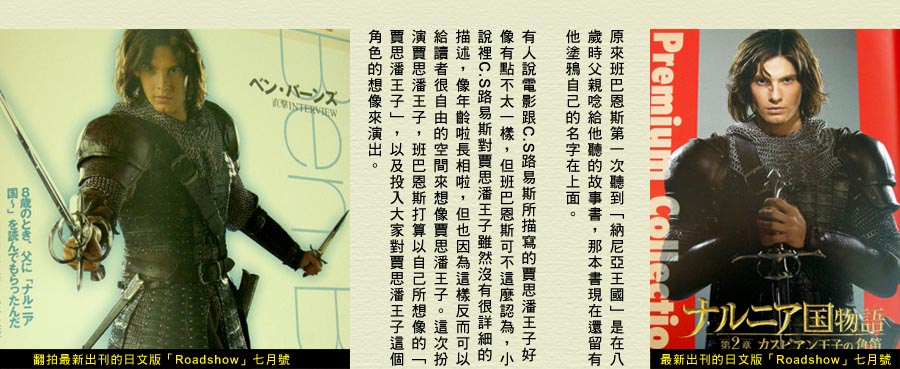 原來班巴恩斯第一次聽到「納尼亞王國」是在八
歲時父親唸給他聽的故事書，那本書現在還留有
他塗鴉自己的名字在上面。
有人說電影跟C.S路易斯所描寫的賈思潘王子好
像有點不太一樣，但班巴恩斯可不這麼認為，小
說裡C.S路易斯對賈思潘王子雖然沒有很詳細的
描述，像年齡啦長相啦，但也因為這樣反而可以
給讀者很自由的空間來想像賈思潘王子。這次扮
演賈思潘王子，班巴恩斯打算以自己所想像的「
賈思潘王子」，以及投入大家對賈思潘王子這個
角色的想像來演出。
Premium Collectio
ナルニア国物語
第2章 カスピアン王子の角笛
最新出刊的日文版「Roadshow」七月號
Ben B
ベン・バーンズ
直撃INTERVIEW
8歳のとき、父に「ナルニア
国〜」を読んでもらったんだ
翻拍最新出刊的日文版「Roadshow」七月號